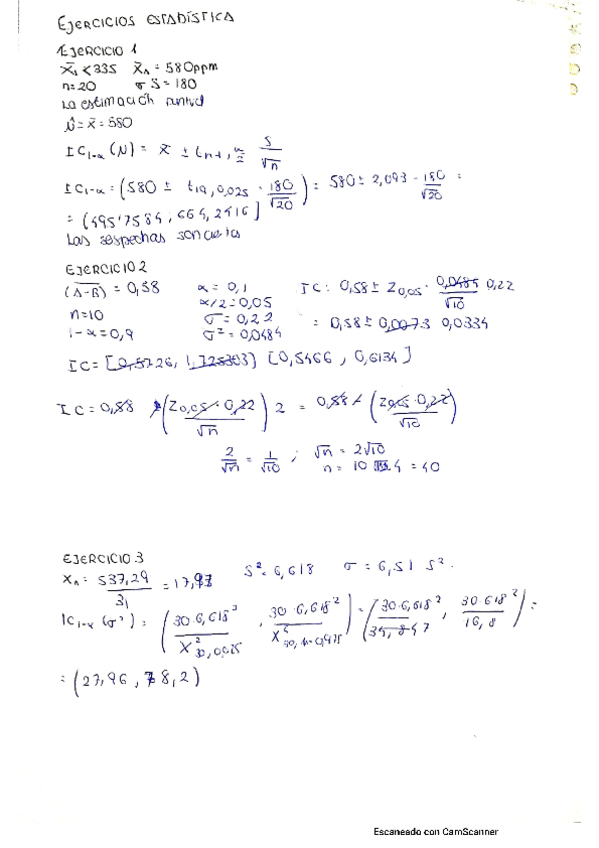 EJERCICIOS ESTADÍSTICA
EJERCICIO 1
X̄₁ < 335 X̄₁ = 580ppm
n=20 σ S=180
La estimación puntual
μ̂ = x̄ = 580
IC₁₋α (μ) = x̄ ± tₙ₋₁, α/2 S/√n
IC₁₋α = (580 ± t₁₉, 0,025 · 180/√20) = 580 ± 2,093 · 180/√20 =
= (495'7584, 664,2416]
Las sospechas son ciertas
EJERCICIO 2
(A-B) = 0,58 α = 0,1 IC: 0,58 ± Z₀,₀₅ · 0,0484 0,22/√10
n=10 α/2=0,05
1-α=0,9 σ=0,22 = 0,58 ± 0,0073 0,0334
σ²=0,0484
IC = [0,5726, ) [0,5466, 0,6134]
IC = 0,58 (Z₀,₀₅ · 0,22/√n) 2 = 0,58 (Z₀,₀₅ · 0,22/√10)
2/√n = 1/√10 ; √n = 2√10
n = 10 4 = 40
EJERCICIO 3
X₁ = 537,29/31 = 17,97 S² = 6,618 σ = 6,51 S².
IC₁₋α (σ²) = (30·6,618²/X²₃₀,₀,₀₂₅ , 30·6,618²/X²₃₀,₁₋₀,₉₇₅) = (30·6,618²/ , 30·618²/16,8) =
= (27,96, 78,2)
Escaneado con CamScanner